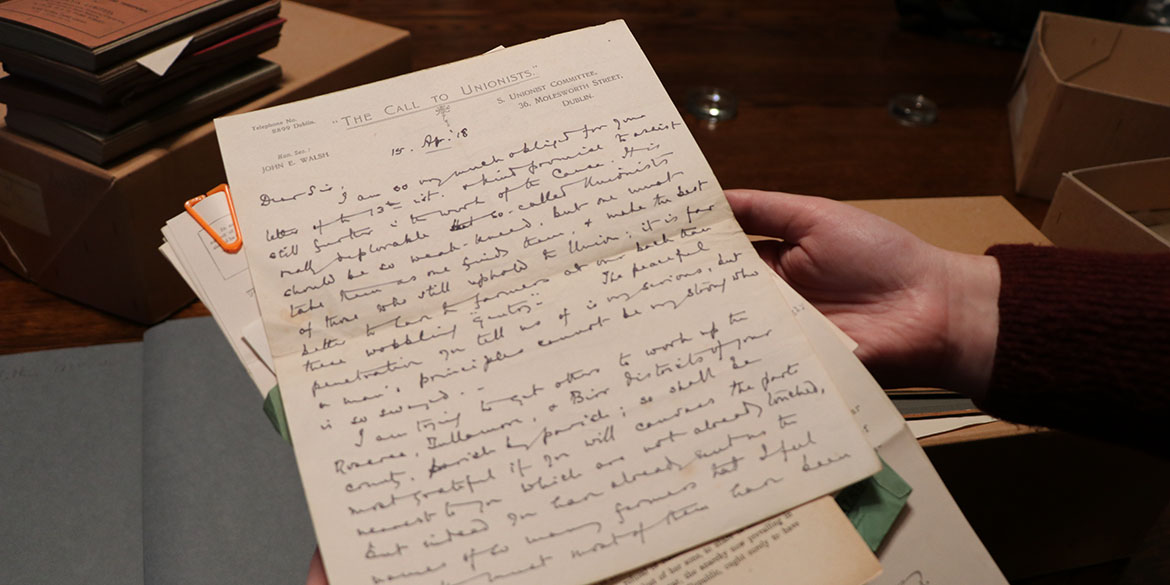 "THE CALL TO UNIONISTS."
Telephone No.
8899 Dublin.
S. UNIONIST COMMITTEE,
36, MOLESWORTH STREET,
DUBLIN.
Hon. Sec.:
JOHN E. WALSH
15. Ap. 18
Dear Sir,
I am so very much obliged for your
letter of the 13th ist. & kind promise to assist
still further in the work of the Cause. It is
really deplorable that so-called Unionists
should be so weak-kneed. but one must
take them as one finds them, & make the best
of those who still uphold the Union; it is far
better to have the farmers at our back than
these wobbling "Gentry". The peaceful
penetration you tell me of is very serious, but
a man's principles cannot be very strong who
is so swayed.
I am trying to get others to work up the
Roscrea, Tullamore, & Birr districts of your
county, parish by parish; so shall be
most grateful if you will canvass the parts
nearest to you which are not already touched,
but indeed you have already sent us the
names of so many farmers that I feel
most of them have been
of her sons, to
the anarchy now prevailing in
republic, ought surely to have